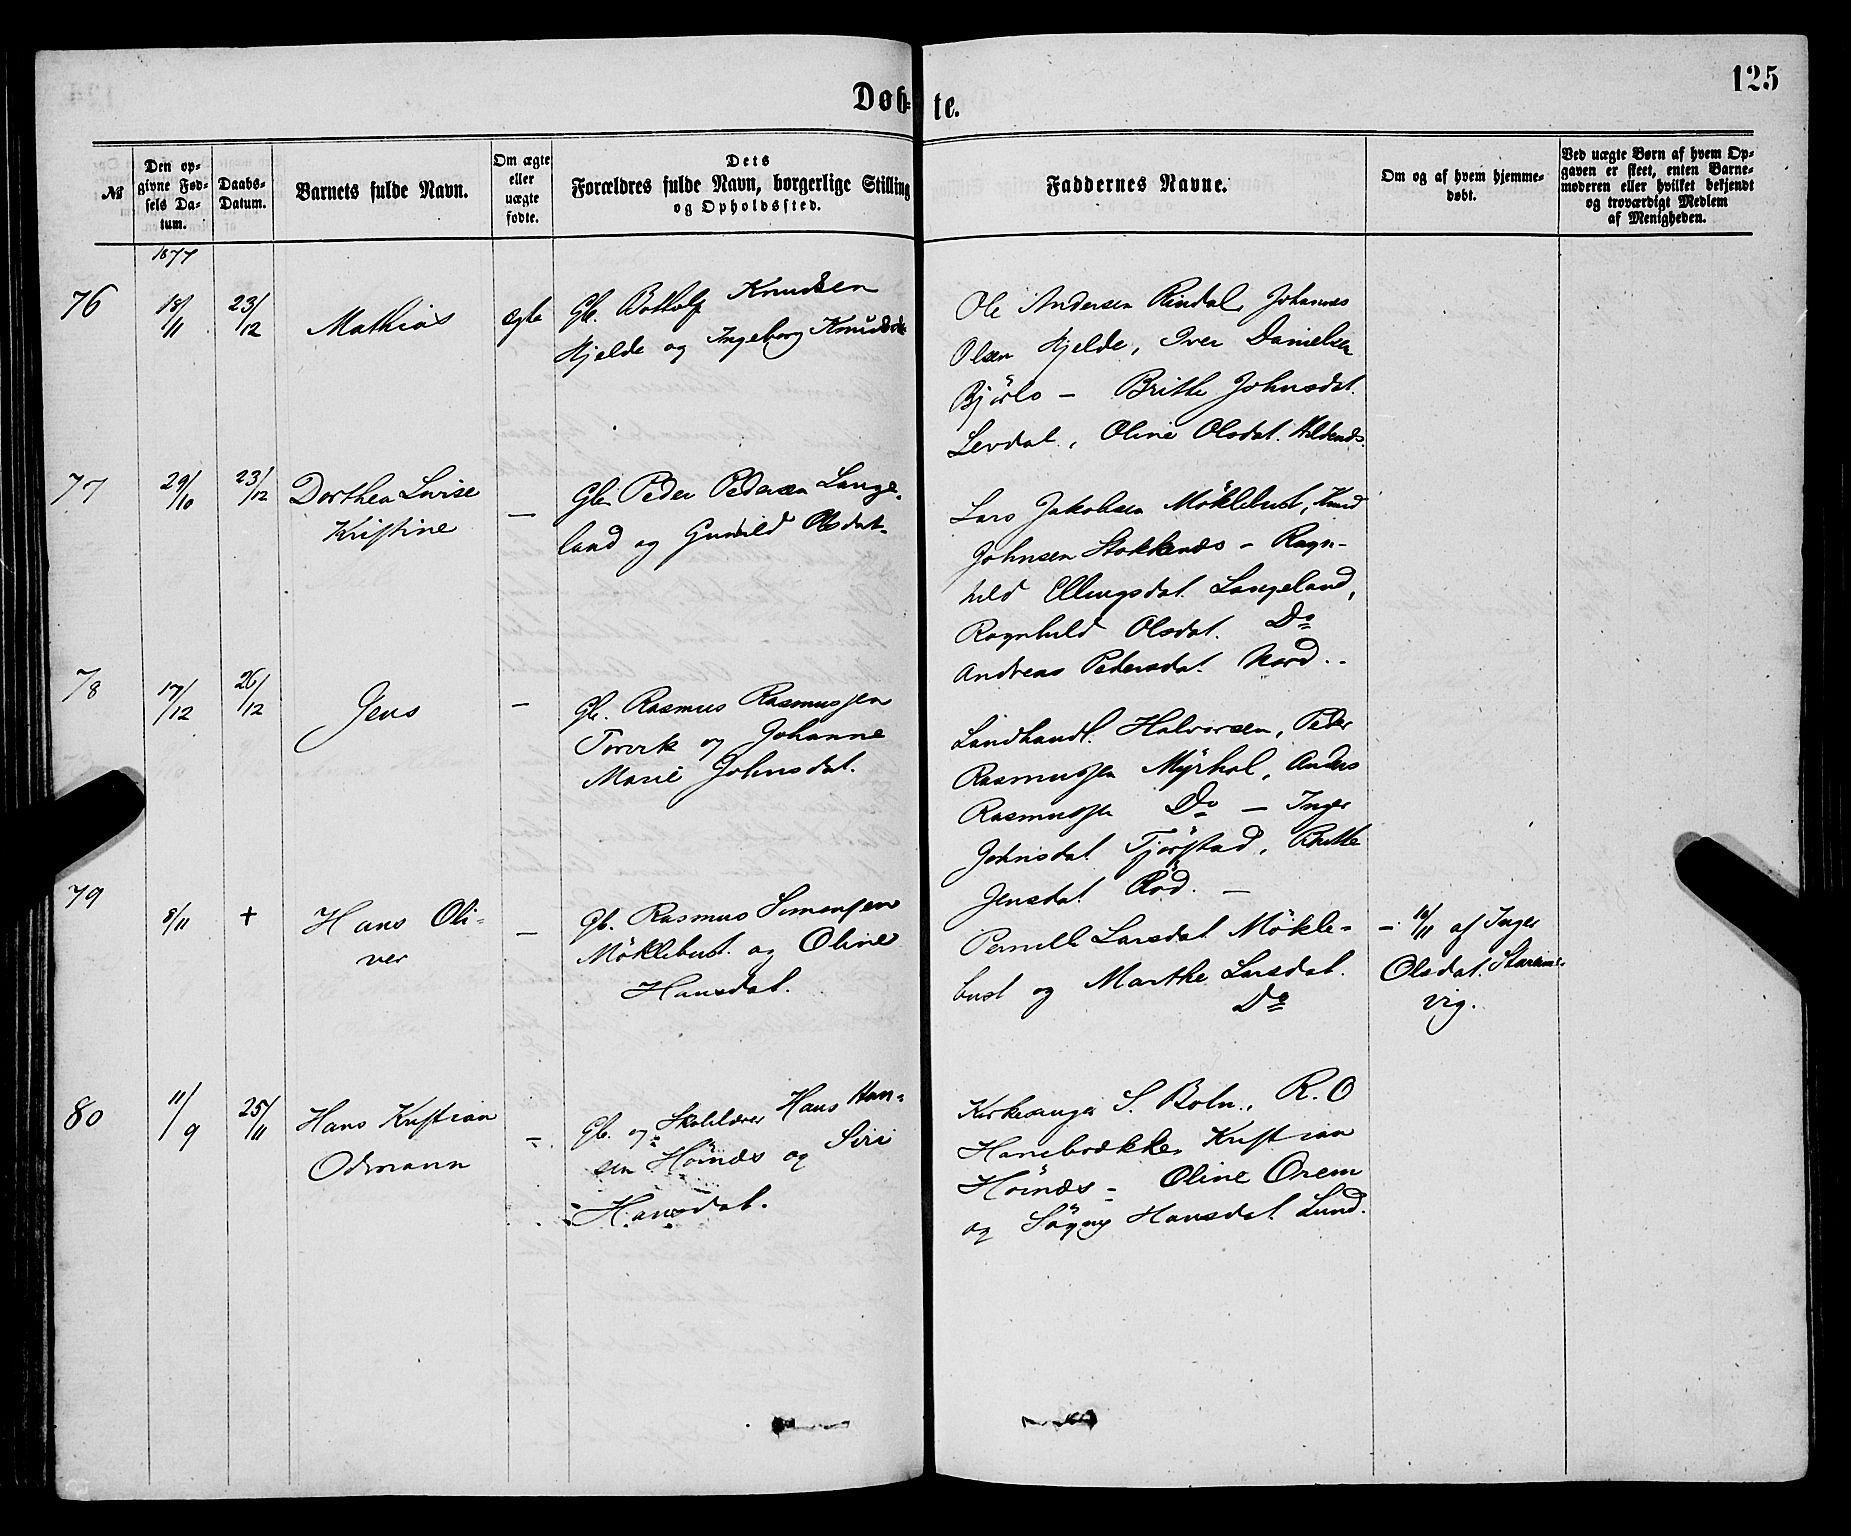 125
Døb- te.
№
Den op-
givne Fød-
sels Da-
tum.
Daabs-
Datum.
Barnets fulde Navn.
Om ægte
eller
uægte
fødte.
Dets
Forældres fulde Navn, borgerlige Stilling
og Opholdssted.
Faddernes Navne.
Om og af hvem hjemme-
døbt.
Ved uægte Børn af hvem Op-
gaven er skeet, enten Barne-
moderen eller hvilket bekjendt
og troværdigt Medlem
af Menigheden.
1877
76
18/11
23/12
Mathias
ægte
Gb. Bottolf Knudsen
Hjelde og Ingeborg
Ole Andersen Rindal, Johannes
Olsen Hjelde, Iver Danielsen
Bjørlo — Brithe Johnsdat.
Levdal, Oline Olsdat.
77
29/10
23/12
Dorthea Lovise
Kristine
—
Gb. Peder Pedersen Lange-
land og Gunhild Olsdat.
Lars Jakobsen Möklebust, Knud
Johnsen Stokkenes - Ragn-
hild Ellingsdat. Langeland,
Ragnhild Olsdat. Do
Andreas Pedersdat. Nord.
78
17/12
26/12
Jens
—
Gb. Rasmus Rasmussen
Torvik og Johanne
Marie Johnsdat.
Landhandl. Halvorsen, Peder
Rasmussen Myrhol, Anders
Rasmussen Do — Inger
Johnsdat Tjørstad, Brithe
Jensdat Röd. —
79
8/11
+
Hans Oli-
ver
—
Gb. Rasmus Simensen
Möklebust og Oline
Hansdat.
Pernille Larsdat Mökle-
bust og Marthe Larsdat.
Do
— 10/11 af Inger
Olsdat.
vig.
80
11/9
25/11
Hans Kristian
Odmann
—
Gb. og Skolelærer Hans Han-
sen Höinæs og Siri
Hansdat.
Kirkesanger S. Boln., R. O
Hanebrække, Kristian
Höinæs - Oline Orem
og Hansdat. Lund.